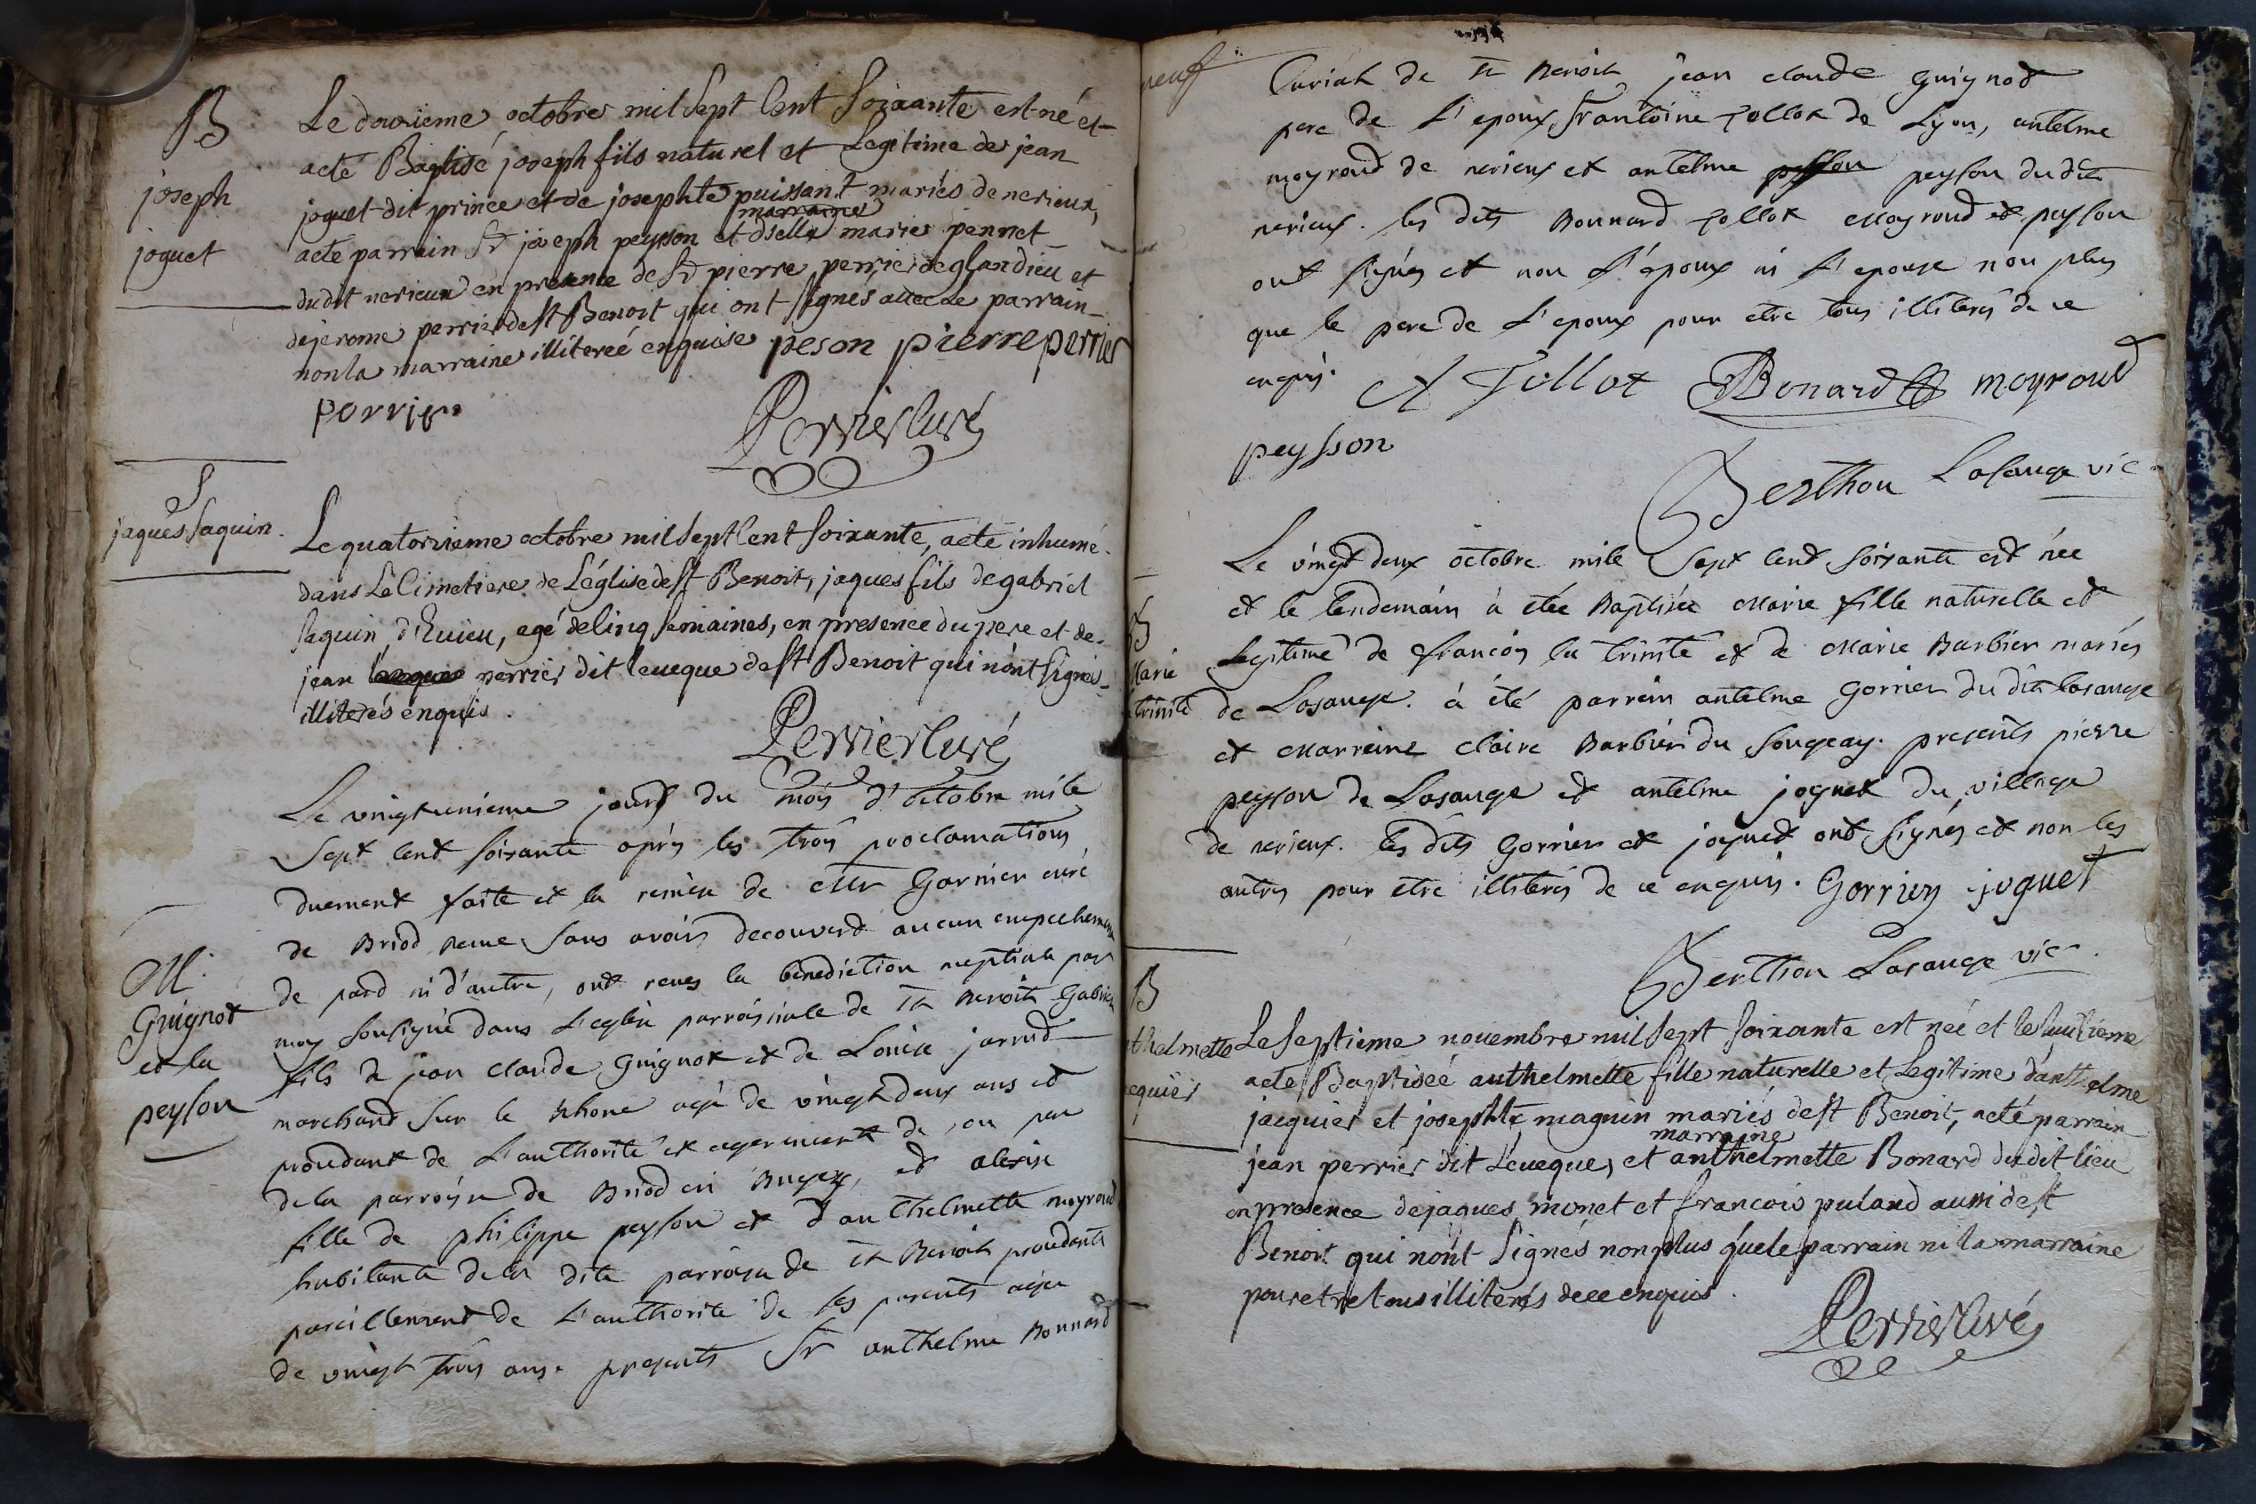 B
joseph
joguet
Le douzieme octobre mil sept Cent Soixante est né et
acté Baptisé joseph fils naturel et Legitime de jean
joguet dit prince et de josephte puissant mariés de nerieux,
marraine
acté parrain Sr joseph peysson et dselle marie pennet
dudit nerieux en presence de Sr pierre perrier de glandieu et
de jerome perrier de st Benoit qui ont signés avec le parrain
non la marraine illitereé enquise peson pierre perrier
perrier
Perrier Curé
S
jaques Saquin.
Le quatorzieme octobre mil Sept Cent Soixante, acté inhumé
dans Le Cimetiere de L'église de st Benoit, jaques fils de gabriel
saquin d'Euieu, agé de Cinq Semaines, en presence du pere et de
jean perrier dit leueque de st Benoit qui n'ont signés
illiterés enquis.
Perrier Curé
M.
Guignot
et la
peyson
Le vingtunieme jour du mois d'octobre mile
Sept Cent Soixante après les trois proclamations
duement faite et la remise de Mr Garnier curé
de Briod sans avoir decouverd aucun empechement
de pard ni d'autre, ont reçus la bénédiction nuptiale par
moy sousigné dans L'eglise parroissiale de st Benoit Gabriel
fils de jean Claude Guignot et de Louise jarrud
marchand sur le Rhone agé de vingt deux ans et
proudant de L'authorité et agreement de, ou par
de la parroisse de Briod en Bugey, et alexise
fille de philippe peyson et d'anthelmette moyroud
habitante de la dite parroisse de st Benoit proudante
pareillement de L'authorité de ses parents agée
de vingt trois ans. presents Sr anthelme Bonnard
neuf
Curiat de st Benoit jean claude Guignot
pere de L'epoux Sr antoine Tollot de Lyon, antelme
moyroud de nerieux et antelme peyson du dit
nerieux. les dits Bonnard Tollot Moyroud et peyson
ont signés et non L'époux ni L'epouse non plus
que le pere de L'epoux pour etre tous illiterés de ce
enquis. A Tollot Bonard moyroud
peysson
Berthou Lasauge vic
B
Marie
la trinité
Le vingt deux octobre mile Sept Cent Soixante est née
et le lendemain à étée Baptisée Marie fille naturelle et
Legitime de françois la trinité et de Marie Barbier mariés
de Lasauge. à été parrain antelme Gorrier du dit lasauge
et Marraine Claire Barbier du Sougeay. presents pierre
peyson de Lasauge et antelme joguet du village
de nerieux. les dits Gorrier et joguet ont signés et non les
autres pour etre illiterés de ce enquis. Gorrier joguet
Berthou Lasauge vic.
B
thelmette
cquier
Le septieme nouembre mil sept soixante est neé et le huitieme
acté Baptiseé anthelmette fille naturelle et Legitime d'anthelme
jacquier et josephte magnin mariés de st Benoit, acté parrain
marraine
jean perrier dit Léueque, et anthelmette Bonard dudit lieu
en presence de jaques monet et francois puland aussi de st
Benoit qui n'ont signés non plus que le parrain ni la marraine
pour etre tous illiterés de ce enquis.
Perrier Curé